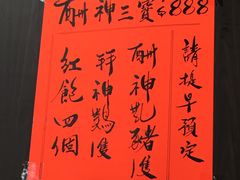 酬神三寶 888
請提早預定
酬神乳豬隻
拜神鷄隻
紅飽四個